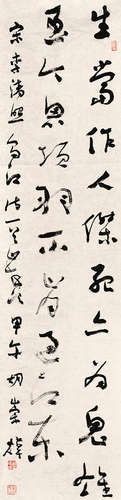 生當作人傑死亦為鬼雄
至今思項羽不肯過江東
宋李清照烏江诗一首 甲午 胡崇煒